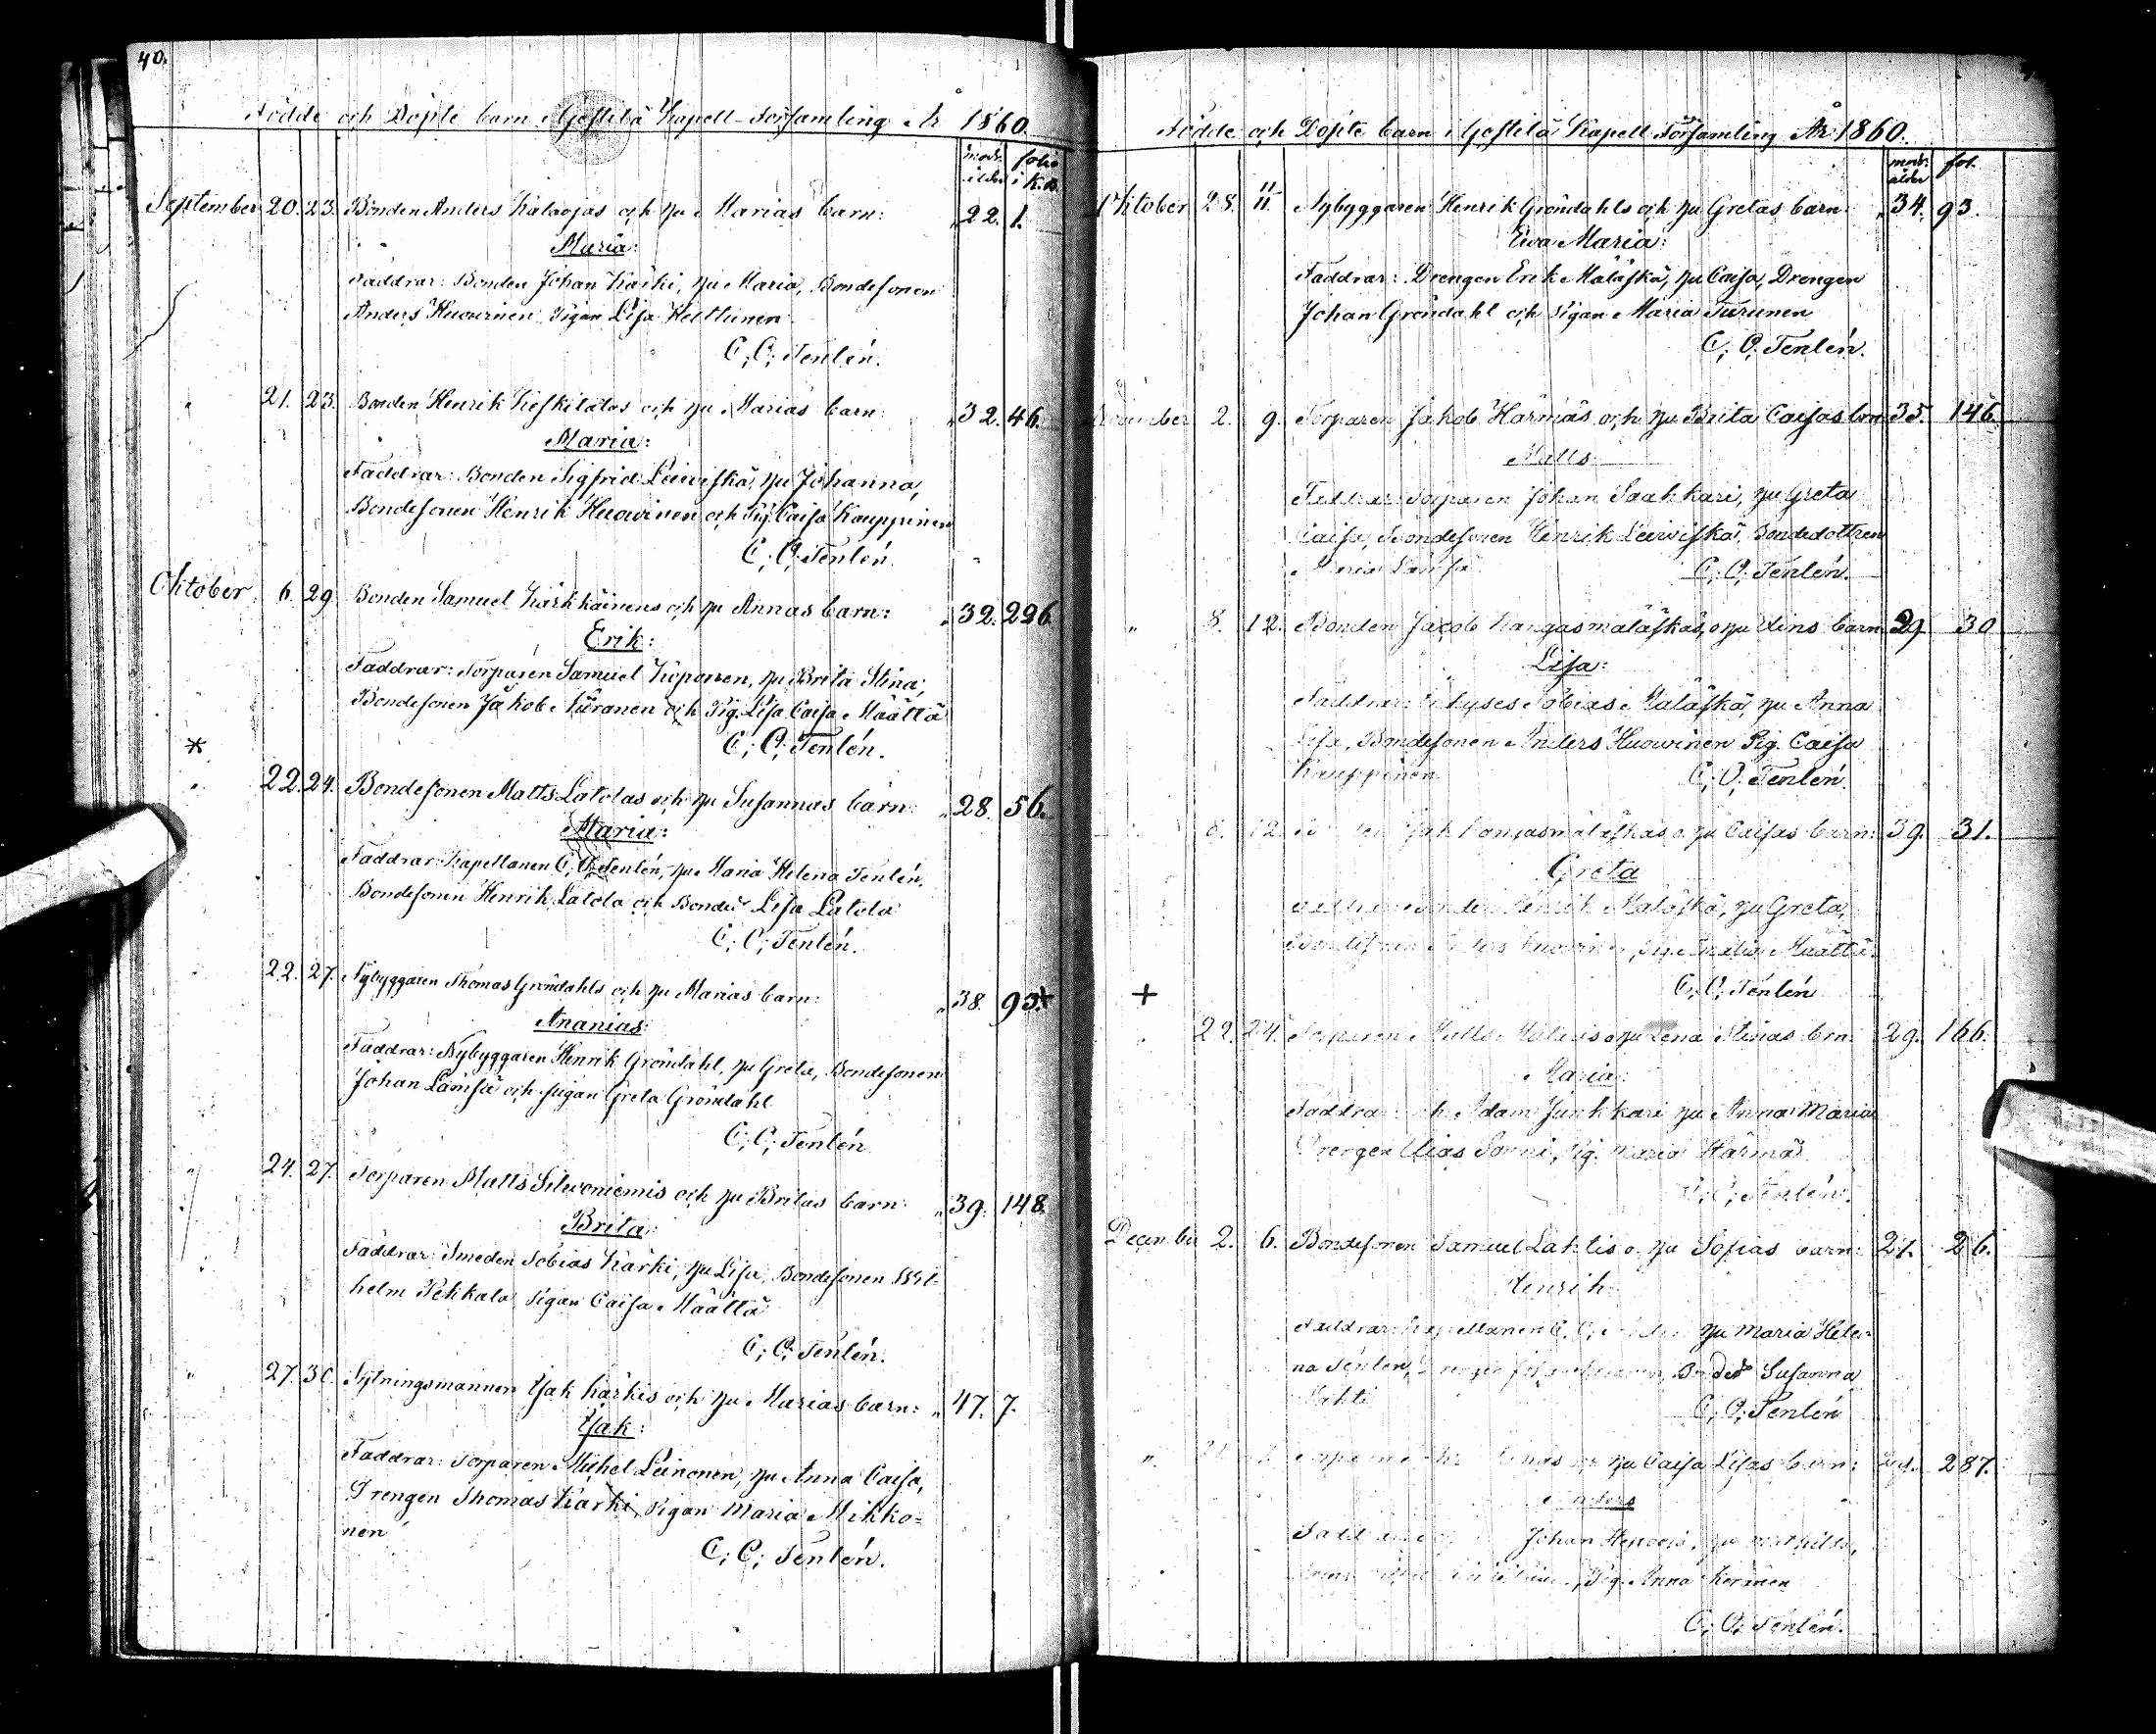 40.
Födde och Döpte barn i Gestilä Kapell-Församling År 1860.
modr. ålder folio i K.B.
September 20. 23. Bonden Anders Kalaojas och hu Marias barn: 22. 1.
Maria:
Faddrar: Bonden Johan Kärki, hu Maria, Bondesonen
Anders Huovinen Pigan Lisa Heittunen
C; O; Tenlén.
" 21. 23. Bonden Henrik Keskitalos och hu Marias barn: 32. 46.
Maria:
Faddrar: Bonden Sigfrid Leiviskä, hu Johanna,
Bondesonen Henrik Huovinen och Pig. Caisa Kauppinen
C; O; Tenlén.
Oktober 6. 29. Bonden Samuel Kärkkäinens och hu Annas barn: 32. 226.
Erik:
Faddrar: Torparen Samuel Kiponen, hu Brita Stina,
Bondesonen Jakob och Pig. Lisa Caisa Määttä
C; O; Tenlén.
*
" 22. 24. Bondesonen Matts Latolas och hu Susannas barn: 28. 56.
Maria:
Faddrar: Kapellanen C, O, Tenlén, hu Maria Helena Tenlén,
Bondesonen Henrik Latola och Bonded. Lisa Latola
C; O; Tenlén.
" 22. 27. Nybyggaren Thomas Gröndahls och hu Marias barn: 38. 93. +
Ananias:
Faddrar: Nybyggaren Henrik Gröndahl, hu Greta, Bondesonen
Johan Lämsä och pigan Greta Gröndahl
C; O; Tenlén
" 24. 27. Torparen Matts Silvoniemis och hu Britas barn: 39. 148.
Brita:
Faddrar: Smeden Tobias Kärki, hu Lisa, Bondesonen Wil-
helm Pekkala Pigan Caisa Määttä
C; O; Tenlén.
" 27. 30. Sytningsmannen Isak Kärkis och hu Marias barn: 47. 7.
Isak:
Faddrar: Torparen Michel Leinonen, hu Anna Caisa,
Drengen Thomas Kärki, Pigan Maria Mikko-
nen
C; O; Tenlén.
Födde och Döpte barn i Gestilä Kapell Församling År 1860.
modr. ålder fol.
Oktober 28. 11/11. Nybyggaren Henrik Gröndahls och hu Gretas barn: 34. 93.
Eva Maria:
Faddrar: Drengen Erik Mäläskä, hu Caisa, Drengen
Johan Gröndahl och Pigan Maria Turunen
C; O; Tenlén.
November 2. 9. Torparen Jakob Härmäs och hu Brita Caisas brn 35. 146.
Matts
Faddrar: Torparen Johan Saahkari, hu Greta
Caisa, Bondesonen Henrik Leiviskä, Bondedottren
Maria Lämsä C; O; Tenlén.
" 8. 12. Bonden Jacob Kangasmäläskäs, o hu Elins barn 29. 30
Lisa:
Faddrar: Tobias Mäläskä, hu Anna
Lisa, Bondesonen Anders Huovinen Pig. Caisa
Kauppinen C; O; Tenlén.
8. 12. Kangasmäläskäs o. hu Caisas barn: 39. 31.
Greta
Henrik Mäläskä, hu Greta,
Määttä
C; O; Tenlén
+
22. 24. Torparen Matts o hu Lena Stinas brn: 29. 166.
Maria:
Faddrar: Adam Junkkari hu Anna Maria
Drengen Elias Sonni, Pig. Maria Härmä
C; O; Tenlén.
December 2. 6. Bondesonen Samuel Lahtis o. hu Sofias barn: 27. 26.
Henrik:
Faddrar: Kapellanen C. O; hu Maria Hele-
na Tenlén, Bonded. Susanna
Lahti C; O; Tenlén
" hu Caisa Lisas barn: 287.
Johan hu
Pig. Anna Keränen
C; O; Tenlén.